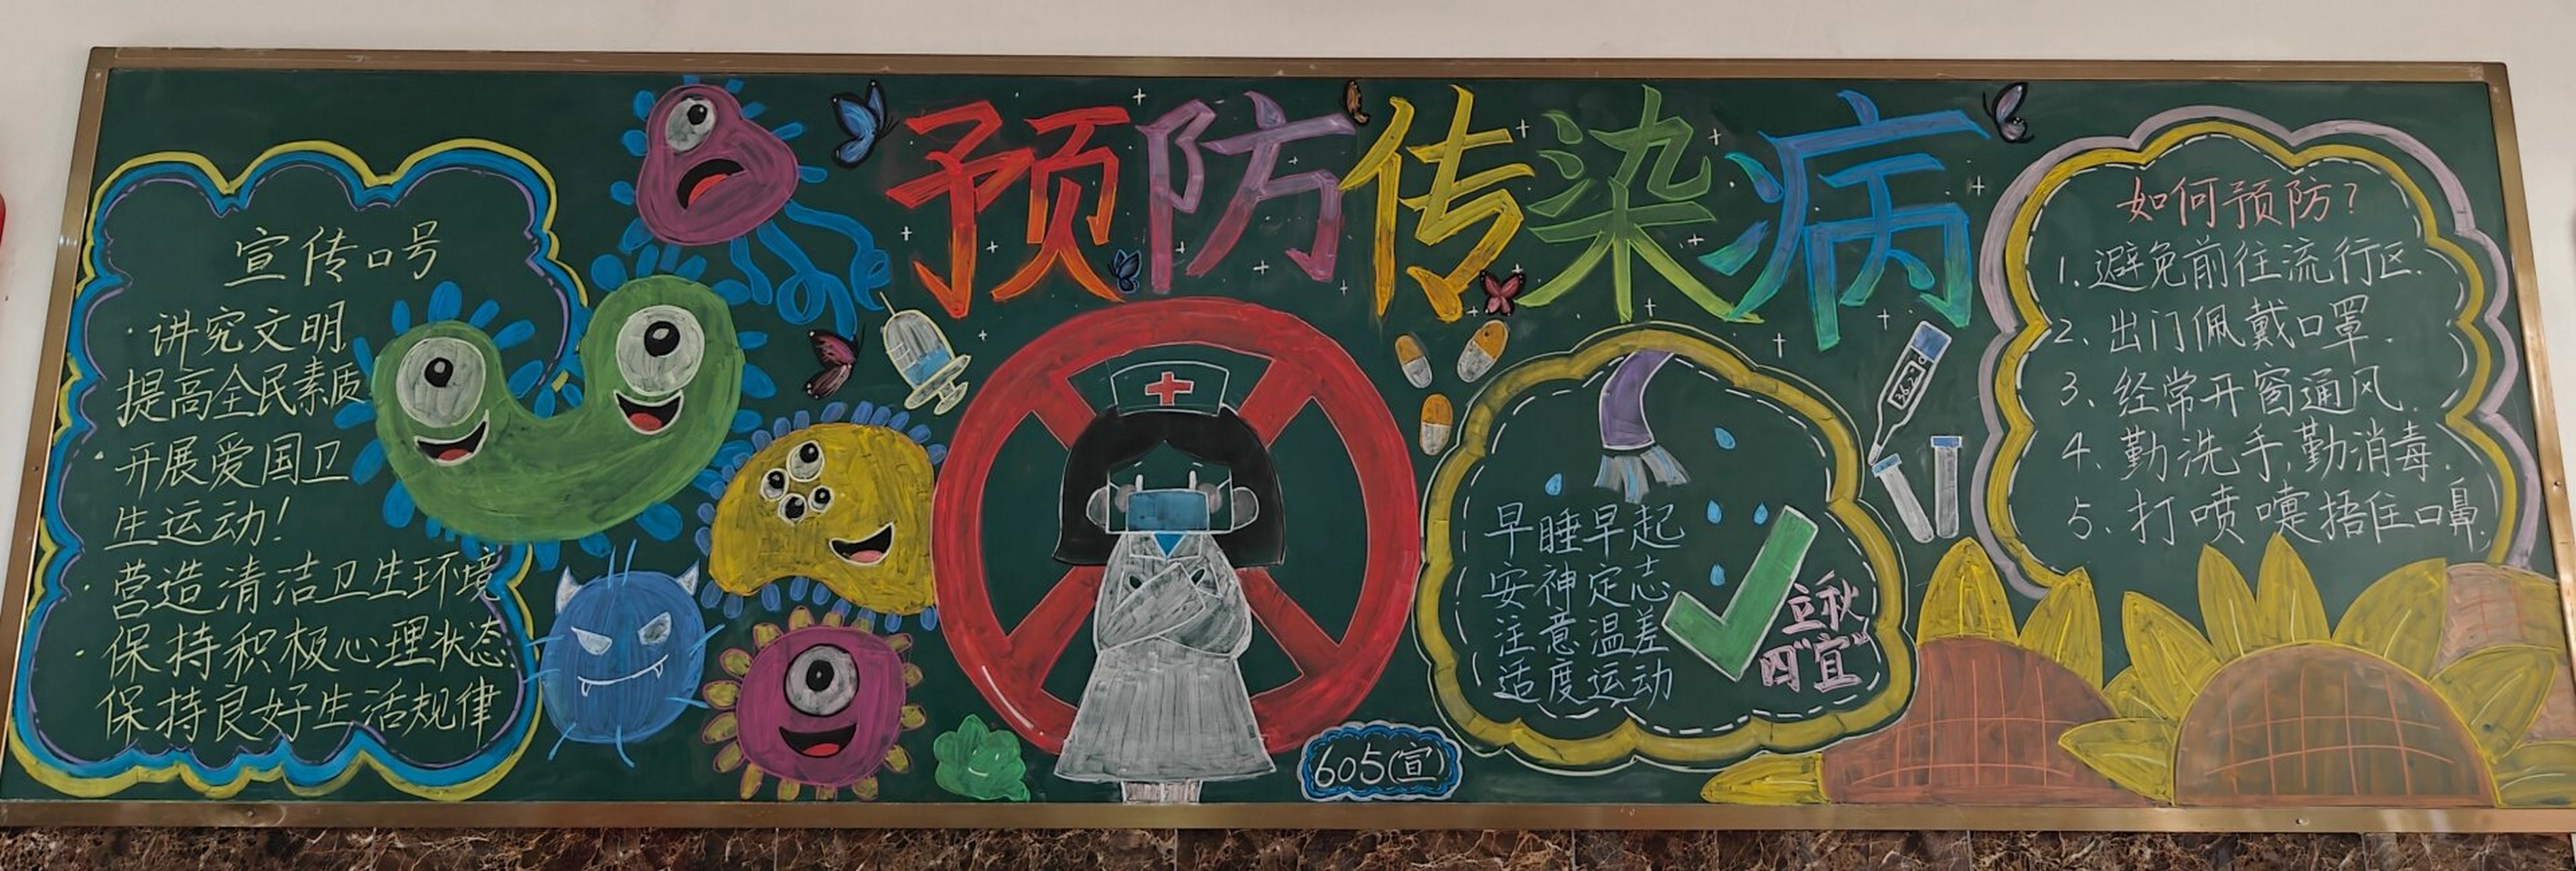 预防传染病
宣传口号
·讲究文明
提高全民素质
·开展爱国卫
生运动!
·营造清洁卫生环境
·保持积极心理状态
保持良好生活规律
早睡早起
安神定志
注意温差
适度运动
立秋
四"宜"
605(宣)
如何预防?
1.避免前往流行区.
2、出门佩戴口罩.
3、经常开窗通风.
4、勤洗手,勤消毒.
5、打喷嚏捂住口鼻.